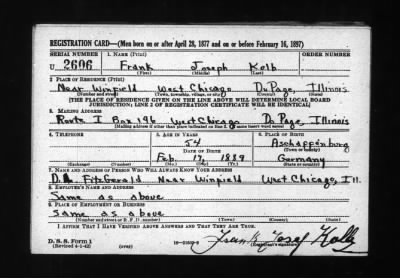 REGISTRATION CARD—(Men born on or after April 28, 1877 and on or before February 16, 1897)
SERIAL NUMBER 1. NAME (Print) ORDER NUMBER
U 2606 Frank Joseph Kolb
(First) (Middle) (Last)
2. PLACE OF RESIDENCE (Print)
Near Winfield West Chicago Du Page, Illinois
(Number and street) (Town, township, village, or city) (County) (State)
[THE PLACE OF RESIDENCE GIVEN ON THE LINE ABOVE WILL DETERMINE LOCAL BOARD
JURISDICTION; LINE 2 OF REGISTRATION CERTIFICATE WILL BE IDENTICAL]
3. MAILING ADDRESS
Route 1 Box 196 West Chicago Du Page Illinois
[Mailing address if other than place indicated on line 2. If same insert word same]
4. TELEPHONE 5. AGE IN YEARS 6. PLACE OF BIRTH
54 Aschaffenburg
DATE OF BIRTH (Town or county)
Feb. 17, 1889 Germany
(Exchange) (Number) (Mo.) (Day) (Yr.) (State or country)
7. NAME AND ADDRESS OF PERSON WHO WILL ALWAYS KNOW YOUR ADDRESS
FitzGerald Near Winfield West Chicago, Ill.
8. EMPLOYER'S NAME AND ADDRESS
Same as above
9. PLACE OF EMPLOYMENT OR BUSINESS
Same as above
(Number and street or R. F. D. number) (Town) (County) (State)
I AFFIRM THAT I HAVE VERIFIED ABOVE ANSWERS AND THAT THEY ARE TRUE.
D. S. S. Form 1
(Revised 4-1-42) (over) (Registrant's signature)